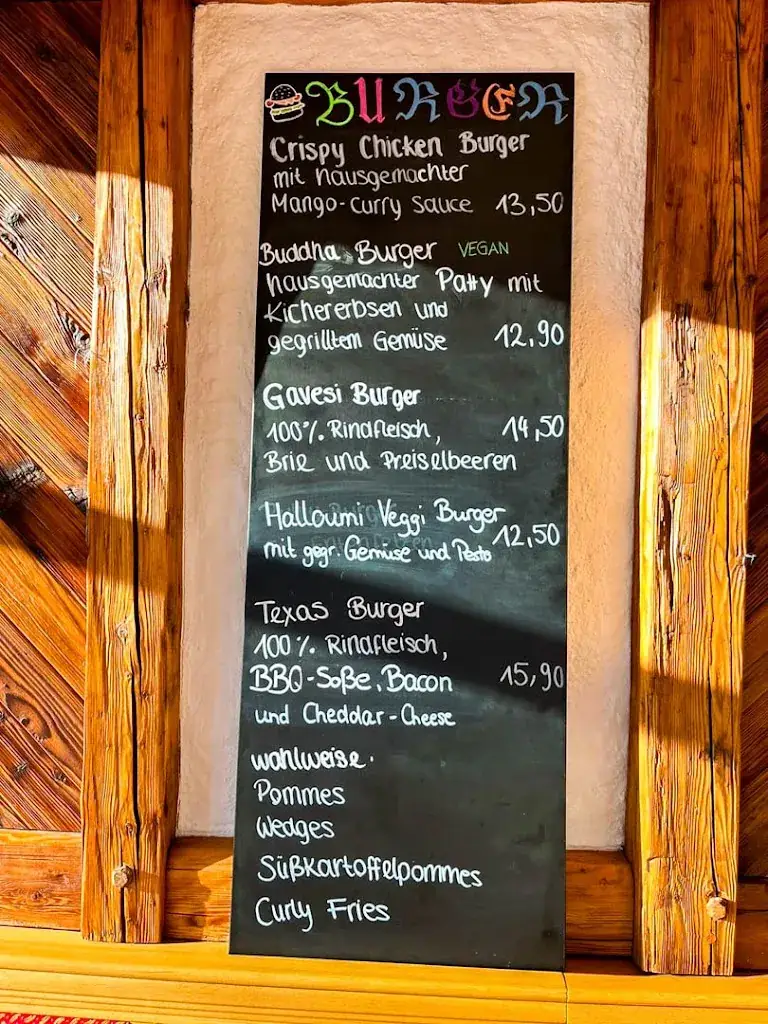 BURGER
Crispy Chicken Burger
mit hausgemachter
Mango-Curry Sauce 13,50
Buddha Burger VEGAN
hausgemachter Patty mit
Kichererbsen und
gegrilltem Gemüse 12,90
Gavesi Burger
100% Rindfleisch, 14,50
Brie und Preiselbeeren
Halloumi Veggi Burger
mit gegr. Gemüse und Pesto 12,50
Texas Burger
100% Rindfleisch,
BBQ-Soße, Bacon 15,90
und Cheddar-Cheese
wahlweise:
Pommes
Wedges
Süßkartoffelpommes
Curly Fries